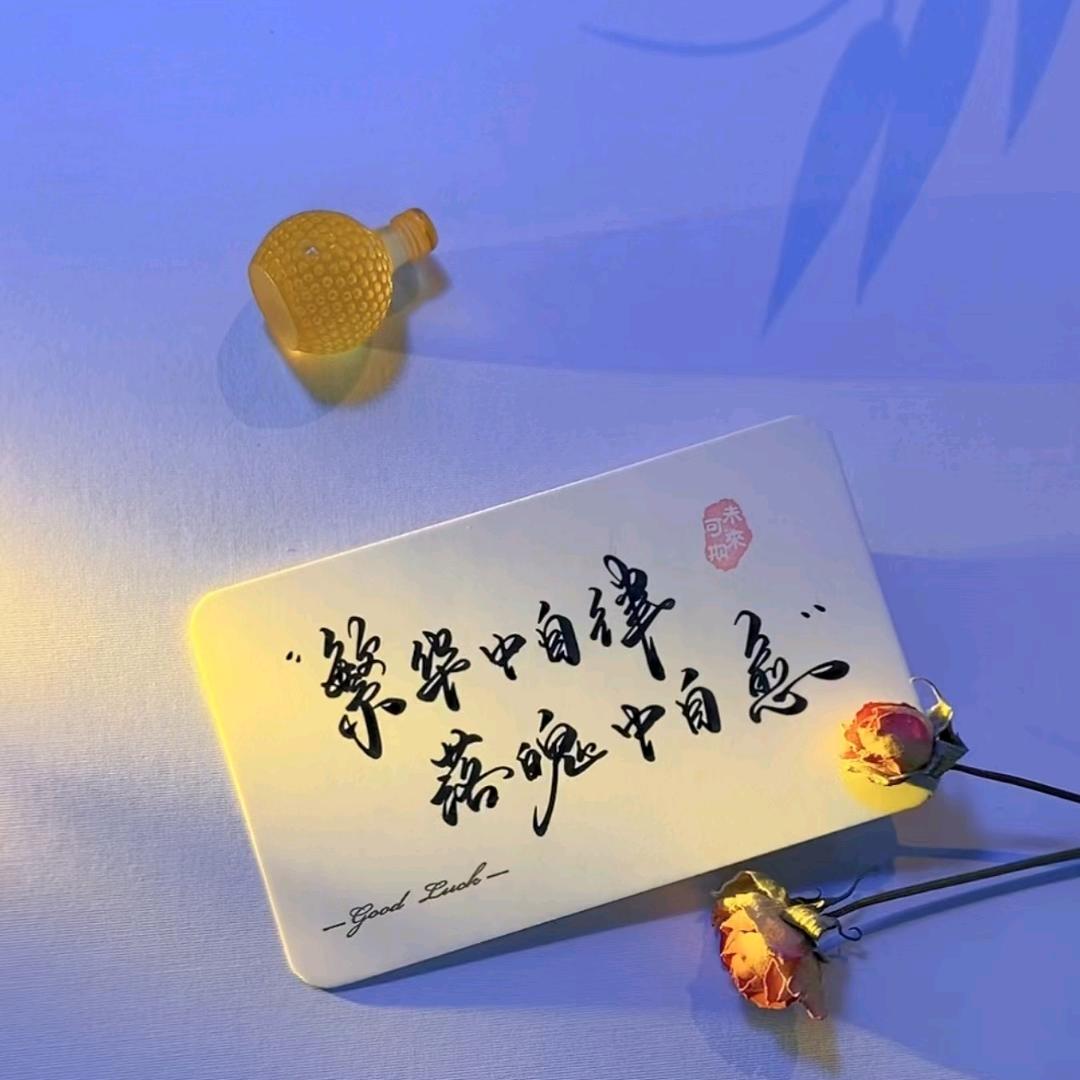 未来
可期
"繁华中自律
落魄中自愈"
—Good Luck—